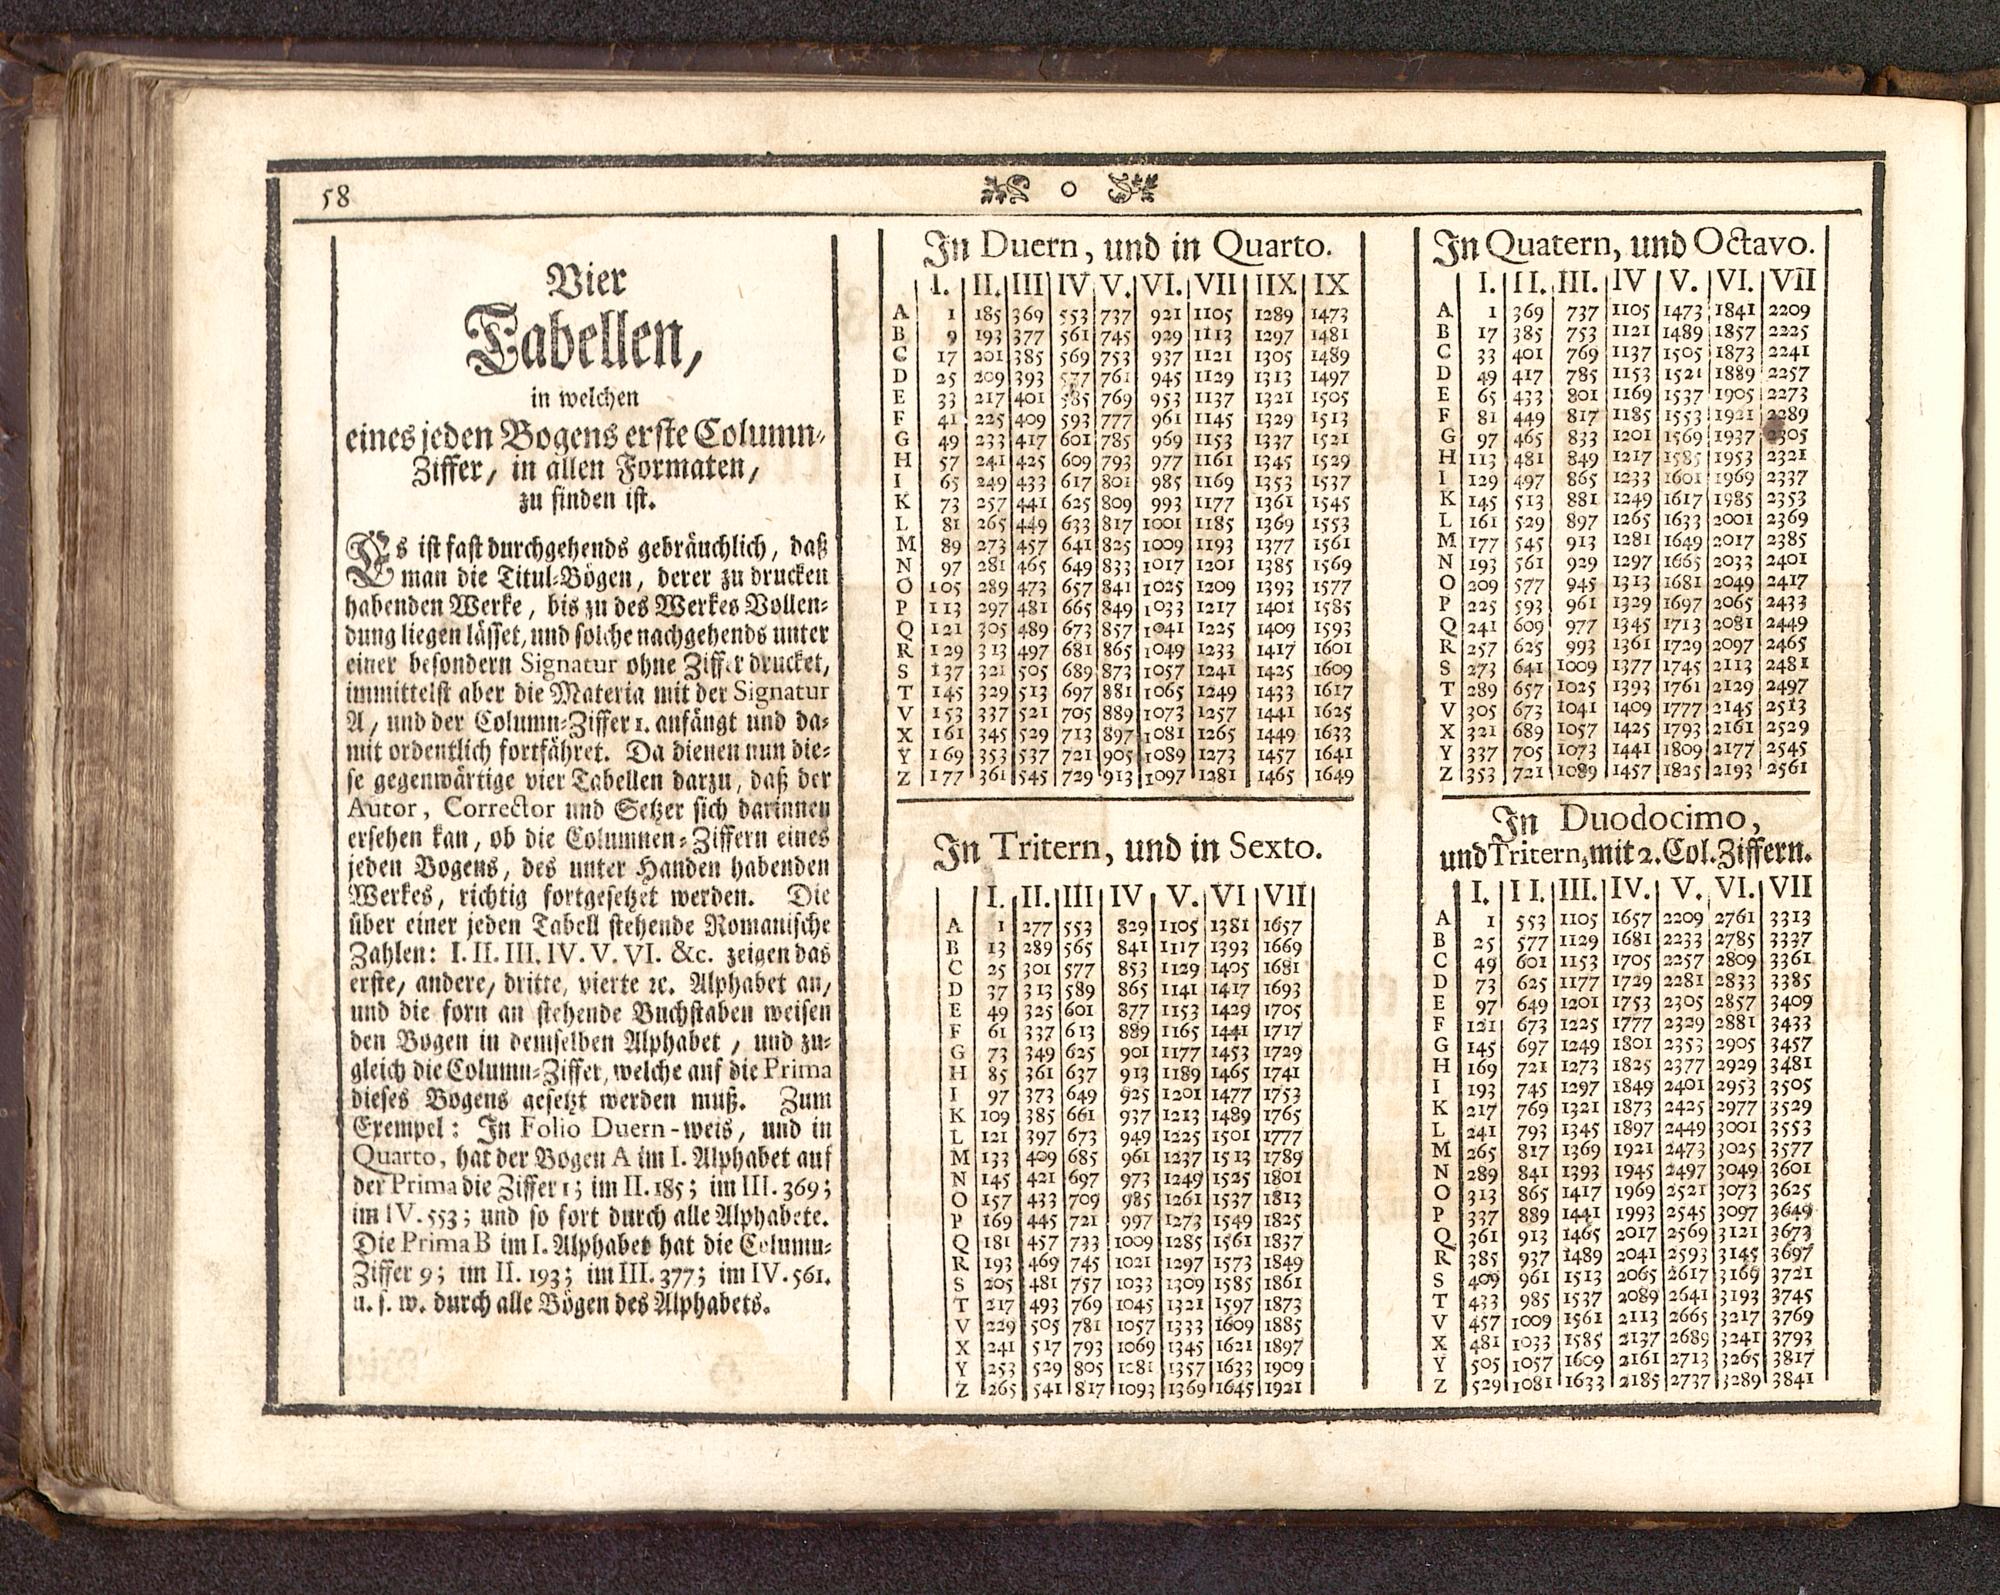 58
o
Vier
Tabellen,
in welchen
eines jeden Bogens erste Column-
Ziffer, in allen Formaten,
zu finden ist.
Es ist fast durchgehends gebräuchlich, daß
man die Titul-Bögen, derer zu drucken
habenden Werke, bis zu des Werkes Vollen-
dung liegen lässet, und solche nachgehends unter
einer besondern Signatur ohne Ziffer drucket,
immittelst aber die Materia mit der Signatur
A, und der Column-Ziffer 1. anfängt und da-
mit ordentlich fortfähret. Da dienen nun die-
se gegenwärtige vier Tabellen darzu, daß der
Autor, Corrector und Setzer sich darinnen
ersehen kan, ob die Columnen-Ziffern eines
jeden Bogens, des unter Handen habenden
Werkes, richtig fortgesetzet werden. Die
über einer jeden Tabell stehende Romanische
Zahlen: I. II. III. IV. V. VI. &c. zeigen das
erste, andere, dritte, vierte ꝛc. Alphabet an,
und die forn an stehende Buchstaben weisen
den Bogen in demselben Alphabet, und zu-
gleich die Column-Ziffer, welche auf die Prima
dieses Bogens gesetzt werden muß. Zum
Exempel: In Folio Duern-weis, und in
Quarto, hat der Bogen A im I. Alphabet auf
der Prima die Ziffer 1; im II. 185; im III. 369;
im IV. 553; und so fort durch alle Alphabete.
Die Prima B im I. Alphabet hat die Column-
Ziffer 9; im II. 193; im III. 377; im IV. 561.
u. s. w. durch alle Bögen des Alphabets.
In Duern, und in Quarto.
I. II. III IV V. VI. VII IIX IX
A 1 185 369 553 737 921 1105 1289 1473
B 9 193 377 561 745 929 1113 1297 1481
C 17 201 385 569 753 937 1121 1305 1489
D 25 209 393 577 761 945 1129 1313 1497
E 33 217 401 585 769 953 1137 1321 1505
F 41 225 409 593 777 961 1145 1329 1513
G 49 233 417 601 785 969 1153 1337 1521
H 57 241 425 609 793 977 1161 1345 1529
I 65 249 433 617 801 985 1169 1353 1537
K 73 257 441 625 809 993 1177 1361 1545
L 81 265 449 633 817 1001 1185 1369 1553
M 89 273 457 641 825 1009 1193 1377 1561
N 97 281 465 649 833 1017 1201 1385 1569
O 105 289 473 657 841 1025 1209 1393 1577
P 113 297 481 665 849 1033 1217 1401 1585
Q 121 305 489 673 857 1041 1225 1409 1593
R 129 313 497 681 865 1049 1233 1417 1601
S 137 321 505 689 873 1057 1241 1425 1609
T 145 329 513 697 881 1065 1249 1433 1617
V 153 337 521 705 889 1073 1257 1441 1625
X 161 345 529 713 897 1081 1265 1449 1633
Y 169 353 537 721 905 1089 1273 1457 1641
Z 177 361 545 729 913 1097 1281 1465 1649
In Tritern, und in Sexto.
I. II. III IV V. VI VII
A 1 277 553 829 1105 1381 1657
B 13 289 565 841 1117 1393 1669
C 25 301 577 853 1129 1405 1681
D 37 313 589 865 1141 1417 1693
E 49 325 601 877 1153 1429 1705
F 61 337 613 889 1165 1441 1717
G 73 349 625 901 1177 1453 1729
H 85 361 637 913 1189 1465 1741
I 97 373 649 925 1201 1477 1753
K 109 385 661 937 1213 1489 1765
L 121 397 673 949 1225 1501 1777
M 133 409 685 961 1237 1513 1789
N 145 421 697 973 1249 1525 1801
O 157 433 709 985 1261 1537 1813
P 169 445 721 997 1273 1549 1825
Q 181 457 733 1009 1285 1561 1837
R 193 469 745 1021 1297 1573 1849
S 205 481 757 1033 1309 1585 1861
T 217 493 769 1045 1321 1597 1873
V 229 505 781 1057 1333 1609 1885
X 241 517 793 1069 1345 1621 1897
Y 253 529 805 1081 1357 1633 1909
Z 265 541 817 1093 1369 1645 1921
In Quatern, und Octavo.
I. II. III. IV V. VI. VII
A 1 369 737 1105 1473 1841 2209
B 17 385 753 1121 1489 1857 2225
C 33 401 769 1137 1505 1873 2241
D 49 417 785 1153 1521 1889 2257
E 65 433 801 1169 1537 1905 2273
F 81 449 817 1185 1553 1921 2289
G 97 465 833 1201 1569 1937 2305
H 113 481 849 1217 1585 1953 2321
I 129 497 865 1233 1601 1969 2337
K 145 513 881 1249 1617 1985 2353
L 161 529 897 1265 1633 2001 2369
M 177 545 913 1281 1649 2017 2385
N 193 561 929 1297 1665 2033 2401
O 209 577 945 1313 1681 2049 2417
P 225 593 961 1329 1697 2065 2433
Q 241 609 977 1345 1713 2081 2449
R 257 625 993 1361 1729 2097 2465
S 273 641 1009 1377 1745 2113 2481
T 289 657 1025 1393 1761 2129 2497
V 305 673 1041 1409 1777 2145 2513
X 321 689 1057 1425 1793 2161 2529
Y 337 705 1073 1441 1809 2177 2545
Z 353 721 1089 1457 1825 2193 2561
In Duodocimo,
und Tritern, mit 2. Col. Ziffern.
I. II. III. IV. V. VI. VII
A 1 553 1105 1657 2209 2761 3313
B 25 577 1129 1681 2233 2785 3337
C 49 601 1153 1705 2257 2809 3361
D 73 625 1177 1729 2281 2833 3385
E 97 649 1201 1753 2305 2857 3409
F 121 673 1225 1777 2329 2881 3433
G 145 697 1249 1801 2353 2905 3457
H 169 721 1273 1825 2377 2929 3481
I 193 745 1297 1849 2401 2953 3505
K 217 769 1321 1873 2425 2977 3529
L 241 793 1345 1897 2449 3001 3553
M 265 817 1369 1921 2473 3025 3577
N 289 841 1393 1945 2497 3049 3601
O 313 865 1417 1969 2521 3073 3625
P 337 889 1441 1993 2545 3097 3649
Q 361 913 1465 2017 2569 3121 3673
R 385 937 1489 2041 2593 3145 3697
S 409 961 1513 2065 2617 3169 3721
T 433 985 1537 2089 2641 3193 3745
V 457 1009 1561 2113 2665 3217 3769
X 481 1033 1585 2137 2689 3241 3793
Y 505 1057 1609 2161 2713 3265 3817
Z 529 1081 1633 2185 2737 3289 3841